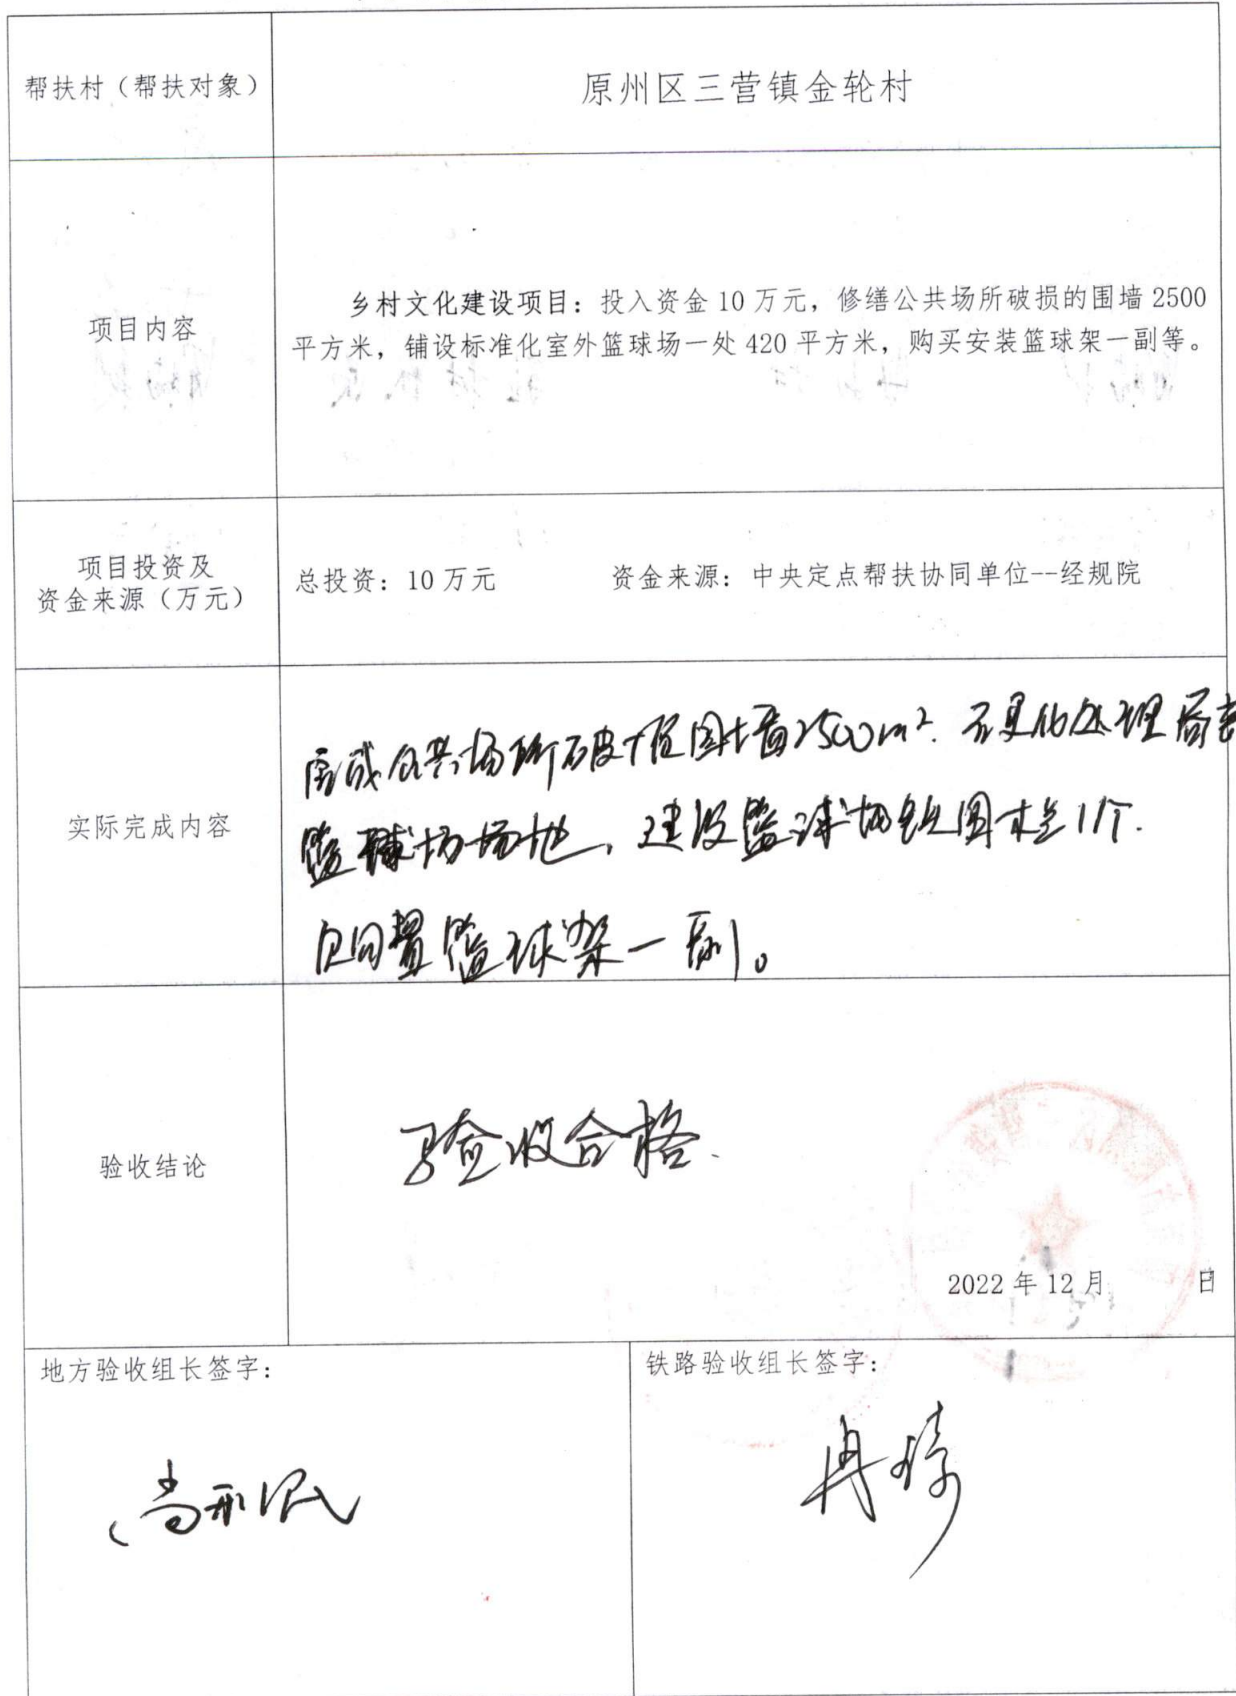 帮扶村（帮扶对象）
原州区三营镇金轮村
项目内容
乡村文化建设项目：投入资金 10 万元，修缮公共场所破损的围墙 2500
平方米，铺设标准化室外篮球场一处 420 平方米，购买安装篮球架一副等。
项目投资及
资金来源（万元）
总投资：10 万元 资金来源：中央定点帮扶协同单位--经规院
实际完成内容
完成公共场所破损围墙2500m². 化处理
篮球场场地，建设篮球场铁围栏1个.
购置篮球架一副。
验收结论
验收合格.
2022 年 12 月 日
地方验收组长签字：
铁路验收组长签字：